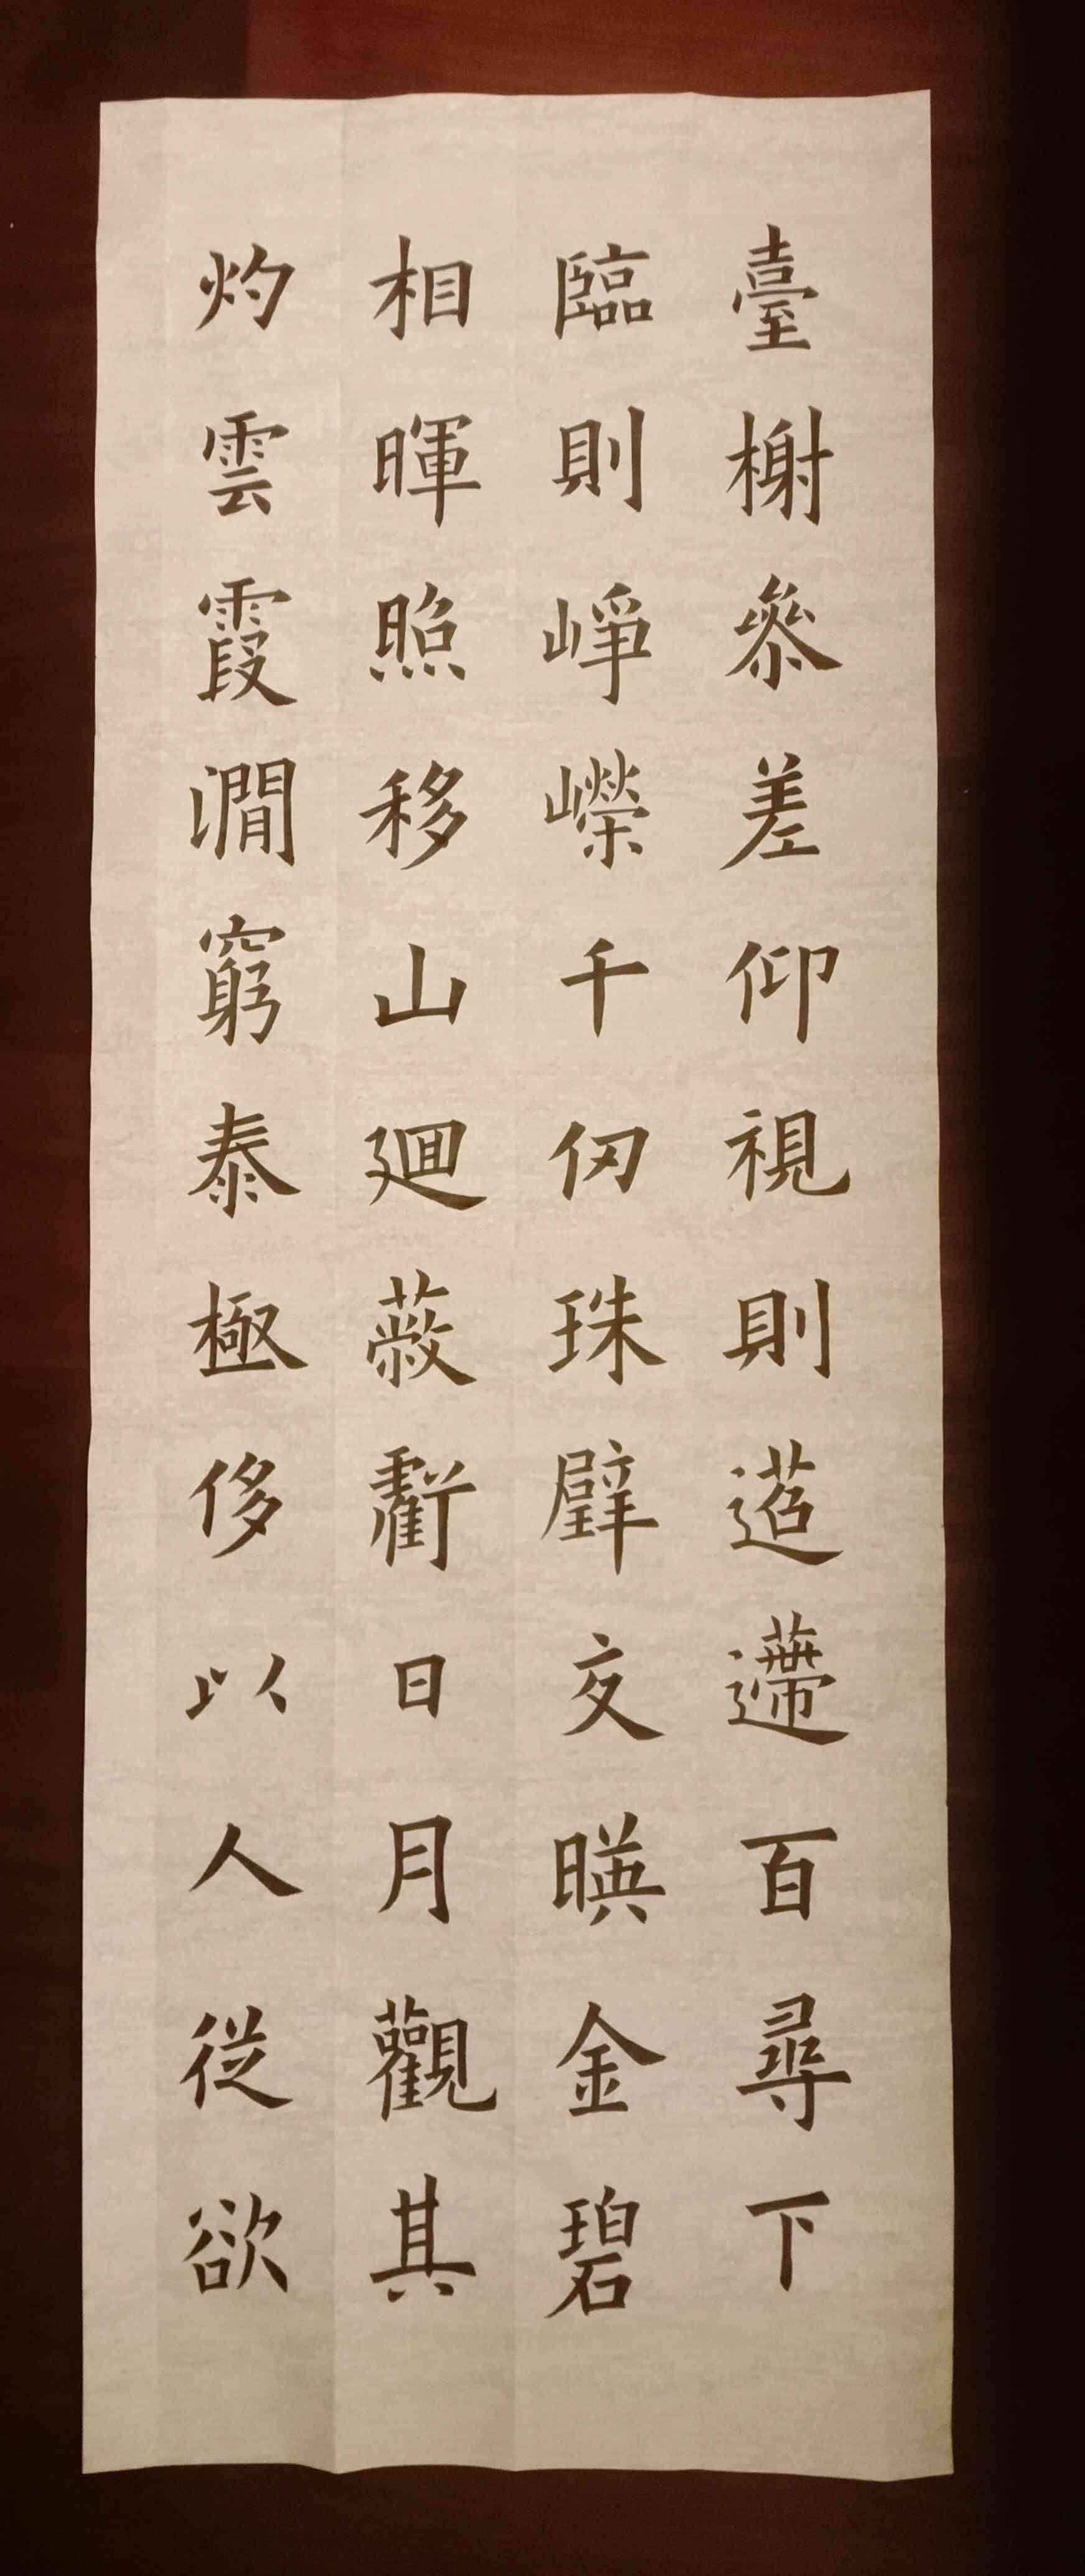 臺榭參差仰視則迢遰百尋下
臨則崢嶸千仞珠璧交暎金碧
相暉照移山廻薮虧日月觀其
灼雲霞澗窮泰極侈以人從欲